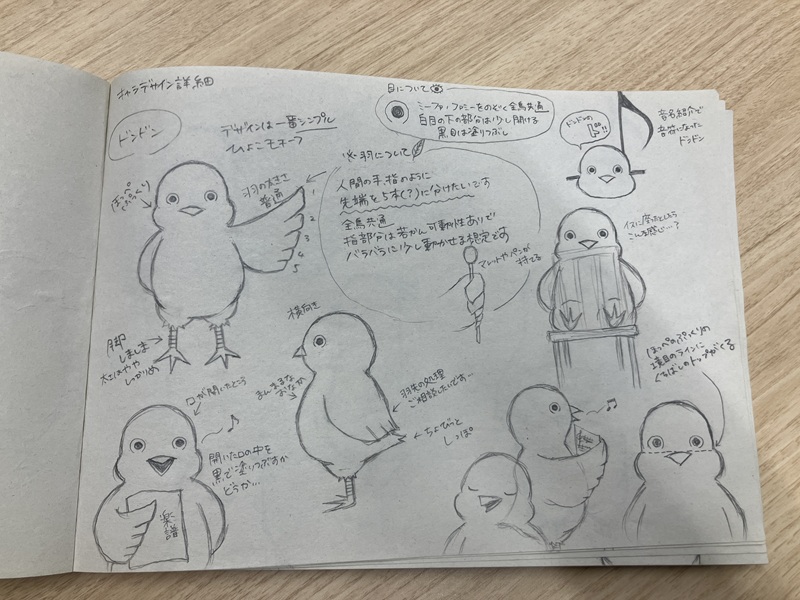 キャラデザイン詳細
ドンドン
デザインは一番シンプル
ひよこモチーフ
目について
ミーファ・フロミーをのぞく全鳥共通
白目の下の部分は少し開ける
黒目は塗りつぶし
音名紹介で
音符になった
ドンドン
ドンドンの
ド!!
ほっぺ
ぷっくり
羽の大きさ
普通
1
2
3
4
5
※羽について
人間の手、指のように
先端を5本(?)に分けたいです
全鳥共通
指部分は若かん可動性ありで
バラバラに少し動かせる想定です
マレットやペンが
持てる
イスに座ったとしたら
こんな感じ…?
脚
しましま
太さはやや
しっかりめ
横向き
まんまるな
おなか
羽先の処理
ご相談したいです…
ちょびっと
しっぽ
口が開いたどう
開いた口の中を
黒で塗りつぶすか
どうか…
楽譜
ほっぺのぷっくりの
境目のラインに
くちばしのトップがくる